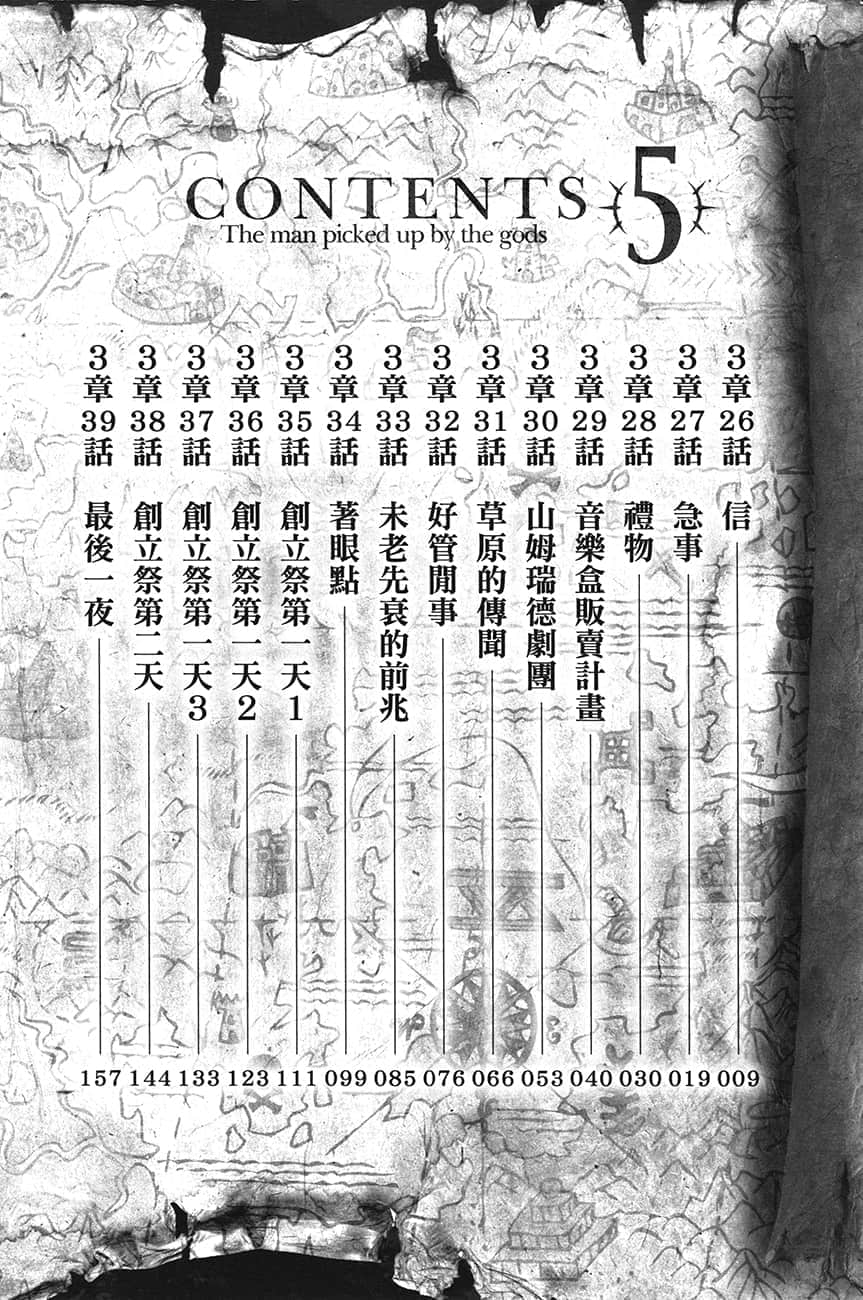 CONTENTS 5
The man picked up by the gods
3章26話 信 009
3章27話 急事 019
3章28話 禮物 030
3章29話 音樂盒販賣計畫 040
3章30話 山姆瑞德劇團 053
3章31話 草原的傳聞 066
3章32話 好管閒事 076
3章33話 未老先衰的前兆 085
3章34話 著眼點 099
3章35話 創立祭第一天1 111
3章36話 創立祭第一天2 123
3章37話 創立祭第一天3 133
3章38話 創立祭第二天 144
3章39話 最後一夜 157